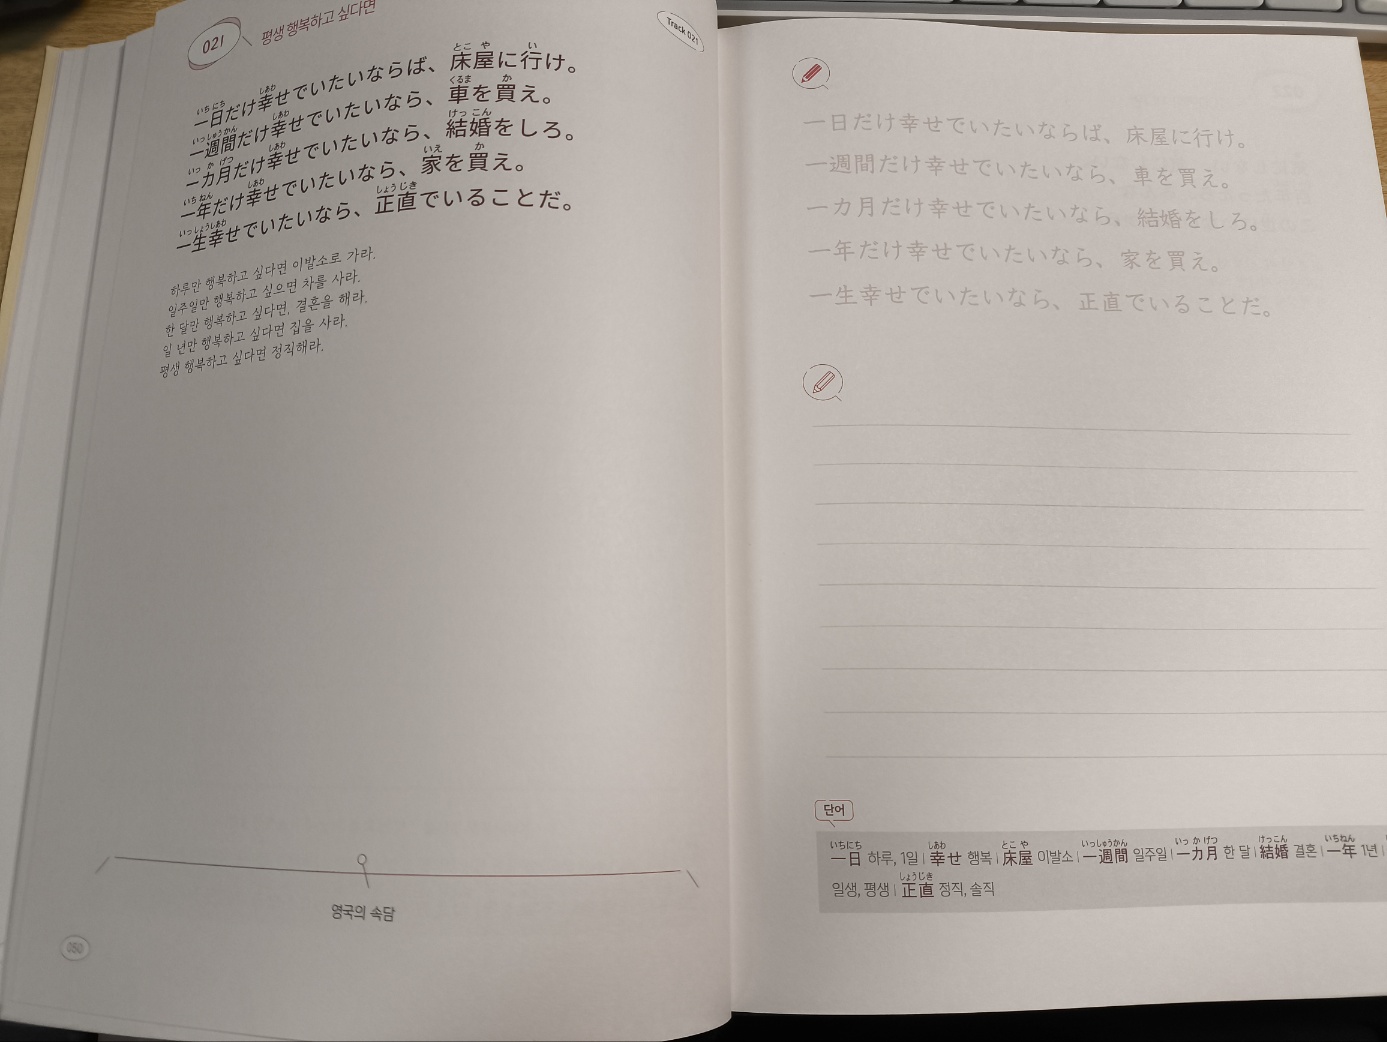 021 평생 행복하고 싶다면
Track 021
一日だけ幸せでいたいならば、床屋に行け。
一週間だけ幸せでいたいなら、車を買え。
一カ月だけ幸せでいたいなら、結婚をしろ。
一年だけ幸せでいたいなら、家を買え。
一生幸せでいたいなら、正直でいることだ。
하루만 행복하고 싶다면 이발소로 가라.
일주일만 행복하고 싶으면 차를 사라.
한 달만 행복하고 싶다면, 결혼을 해라.
일 년만 행복하고 싶다면 집을 사라.
평생 행복하고 싶다면 정직해라.
영국의 속담
050
一日だけ幸せでいたいならば、床屋に行け。
一週間だけ幸せでいたいなら、車を買え。
一カ月だけ幸せでいたいなら、結婚をしろ。
一年だけ幸せでいたいなら、家を買え。
一生幸せでいたいなら、正直でいることだ。
단어
いちにち しあわ とこ や いっしゅうかん いっ か げつ けっこん いちねん
一日 하루, 1일 | 幸せ 행복 | 床屋 이발소 | 一週間 일주일 | 一カ月 한 달 | 結婚 결혼 | 一年 1년 |
しょうじき
일생, 평생 | 正直 정직, 솔직